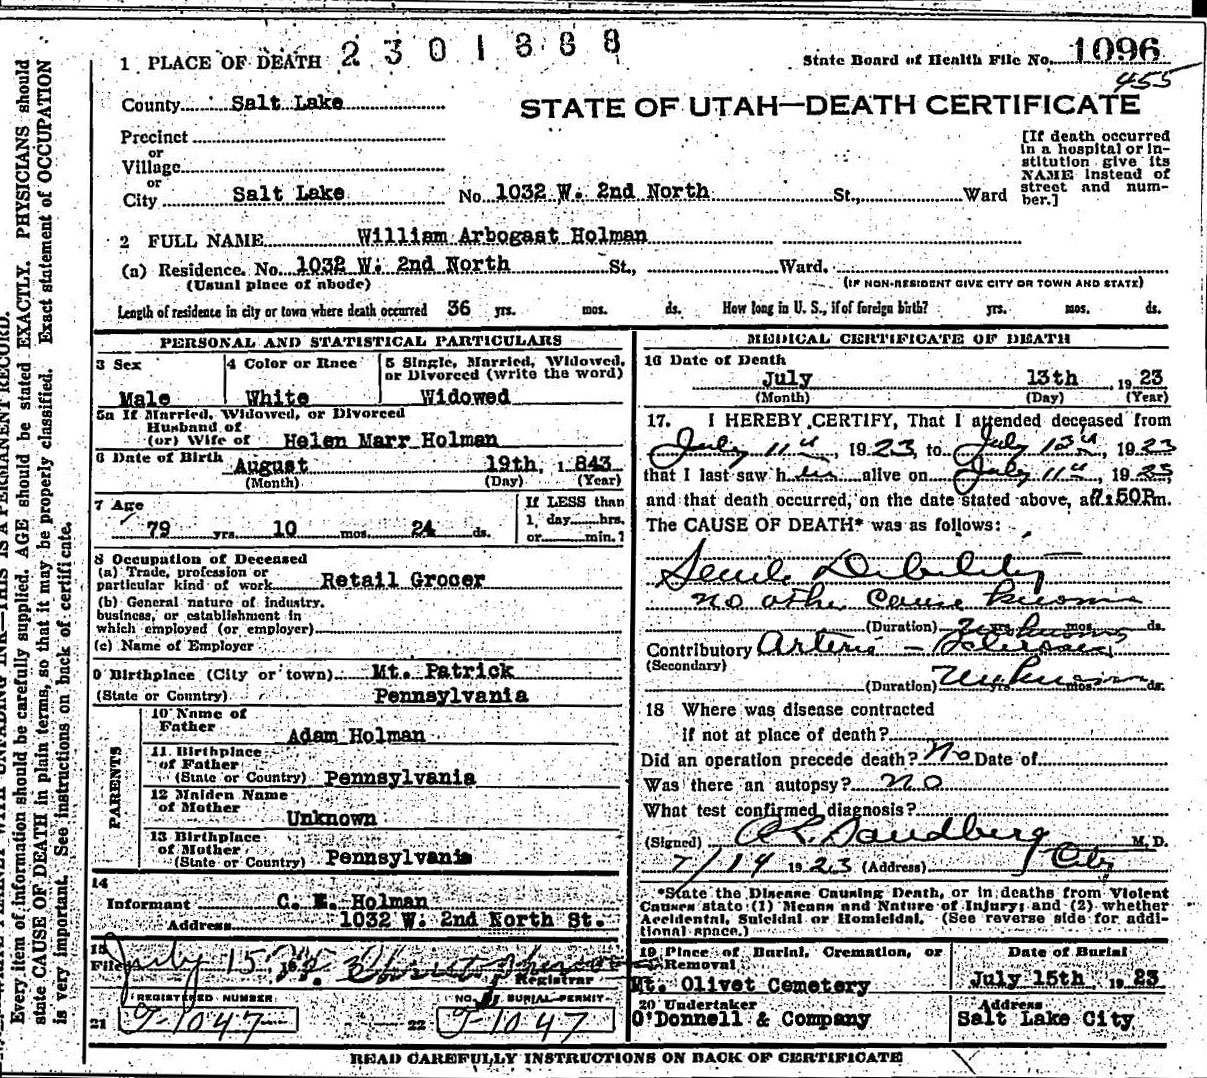 1 PLACE OF DEATH 2301888
State Board of Health File No. 1096
455
County Salt Lake
STATE OF UTAH—DEATH CERTIFICATE
Precinct
or
Village
or
City Salt Lake No. 1032 W. 2nd North St., Ward
[If death occurred
in a hospital or in-
stitution give its
NAME instead of
street and num-
ber.]
2 FULL NAME William Arbogast Holman
(a) Residence. No. 1032 W. 2nd North St., Ward.
(Usual place of abode) (IF NON-RESIDENT GIVE CITY OR TOWN AND STATE)
Length of residence in city or town where death occurred 36 yrs. mos. ds. How long in U. S., if of foreign birth? yrs. mos. ds.
PERSONAL AND STATISTICAL PARTICULARS
3 Sex
Male
4 Color or Race
White
5 Single, Married, Widowed,
or Divorced (write the word)
Widowed
5a If Married, Widowed, or Divorced
Husband of
(or) Wife of Helen Marr Holman
6 Date of Birth August 19th, 1843
(Month) (Day) (Year)
7 Age
79 yrs. 10 mos. 24 ds.
If LESS than
1, day hrs.
or min.?
8 Occupation of Deceased
(a) Trade, profession or
particular kind of work Retail Grocer
(b) General nature of industry,
business, or establishment in
which employed (or employer)
(c) Name of Employer
9 Birthplace (City or town) Mt. Patrick
(State or Country) Pennsylvania
PARENTS
10 Name of
Father Adam Holman
11 Birthplace
of Father
(State or Country) Pennsylvania
12 Maiden Name
of Mother
Unknown
13 Birthplace
of Mother
(State or Country) Pennsylvania
14
Informant C. E. Holman
Address 1032 W. 2nd North St.
15
Filed July 15
Registrar
REGISTERED NUMBER
21 T-1047
NO. BURIAL PERMIT
22 T-1047
MEDICAL CERTIFICATE OF DEATH
16 Date of Death
July 13th, 1923
(Month) (Day) (Year)
17. I HEREBY CERTIFY, That I attended deceased from
July 11th, 1923, to July 13th, 1923
that I last saw him alive on July 11th, 1923,
and that death occurred, on the date stated above, at 7:50P.m.
The CAUSE OF DEATH* was as follows:
Senile Debility
no other cause known
(Duration) unknown yrs. mos. ds.
Contributory Arterio-Sclerosis
(Secondary)
(Duration) Unknown yrs. mos. ds.
18 Where was disease contracted
if not at place of death?
Did an operation precede death? No Date of
Was there an autopsy? no
What test confirmed diagnosis?
(Signed) Sandberg M. D.
7/14 1923 (Address) City
*State the Disease Causing Death, or in deaths from Violent
Causes state (1) Means and Nature of Injury; and (2) whether
Accidental, Suicidal or Homicidal. (See reverse side for addi-
tional space.)
19 Place of Burial, Cremation, or
Removal
Mt. Olivet Cemetery
Date of Burial
July 15th, 1923
20 Undertaker
O'Donnell & Company
Address
Salt Lake City
READ CAREFULLY INSTRUCTIONS ON BACK OF CERTIFICATE
Every item of information should be carefully supplied. AGE should be stated EXACTLY. PHYSICIANS should
state CAUSE OF DEATH in plain terms, so that it may be properly classified. Exact statement of OCCUPATION
is very important. See instructions on back of certificate.